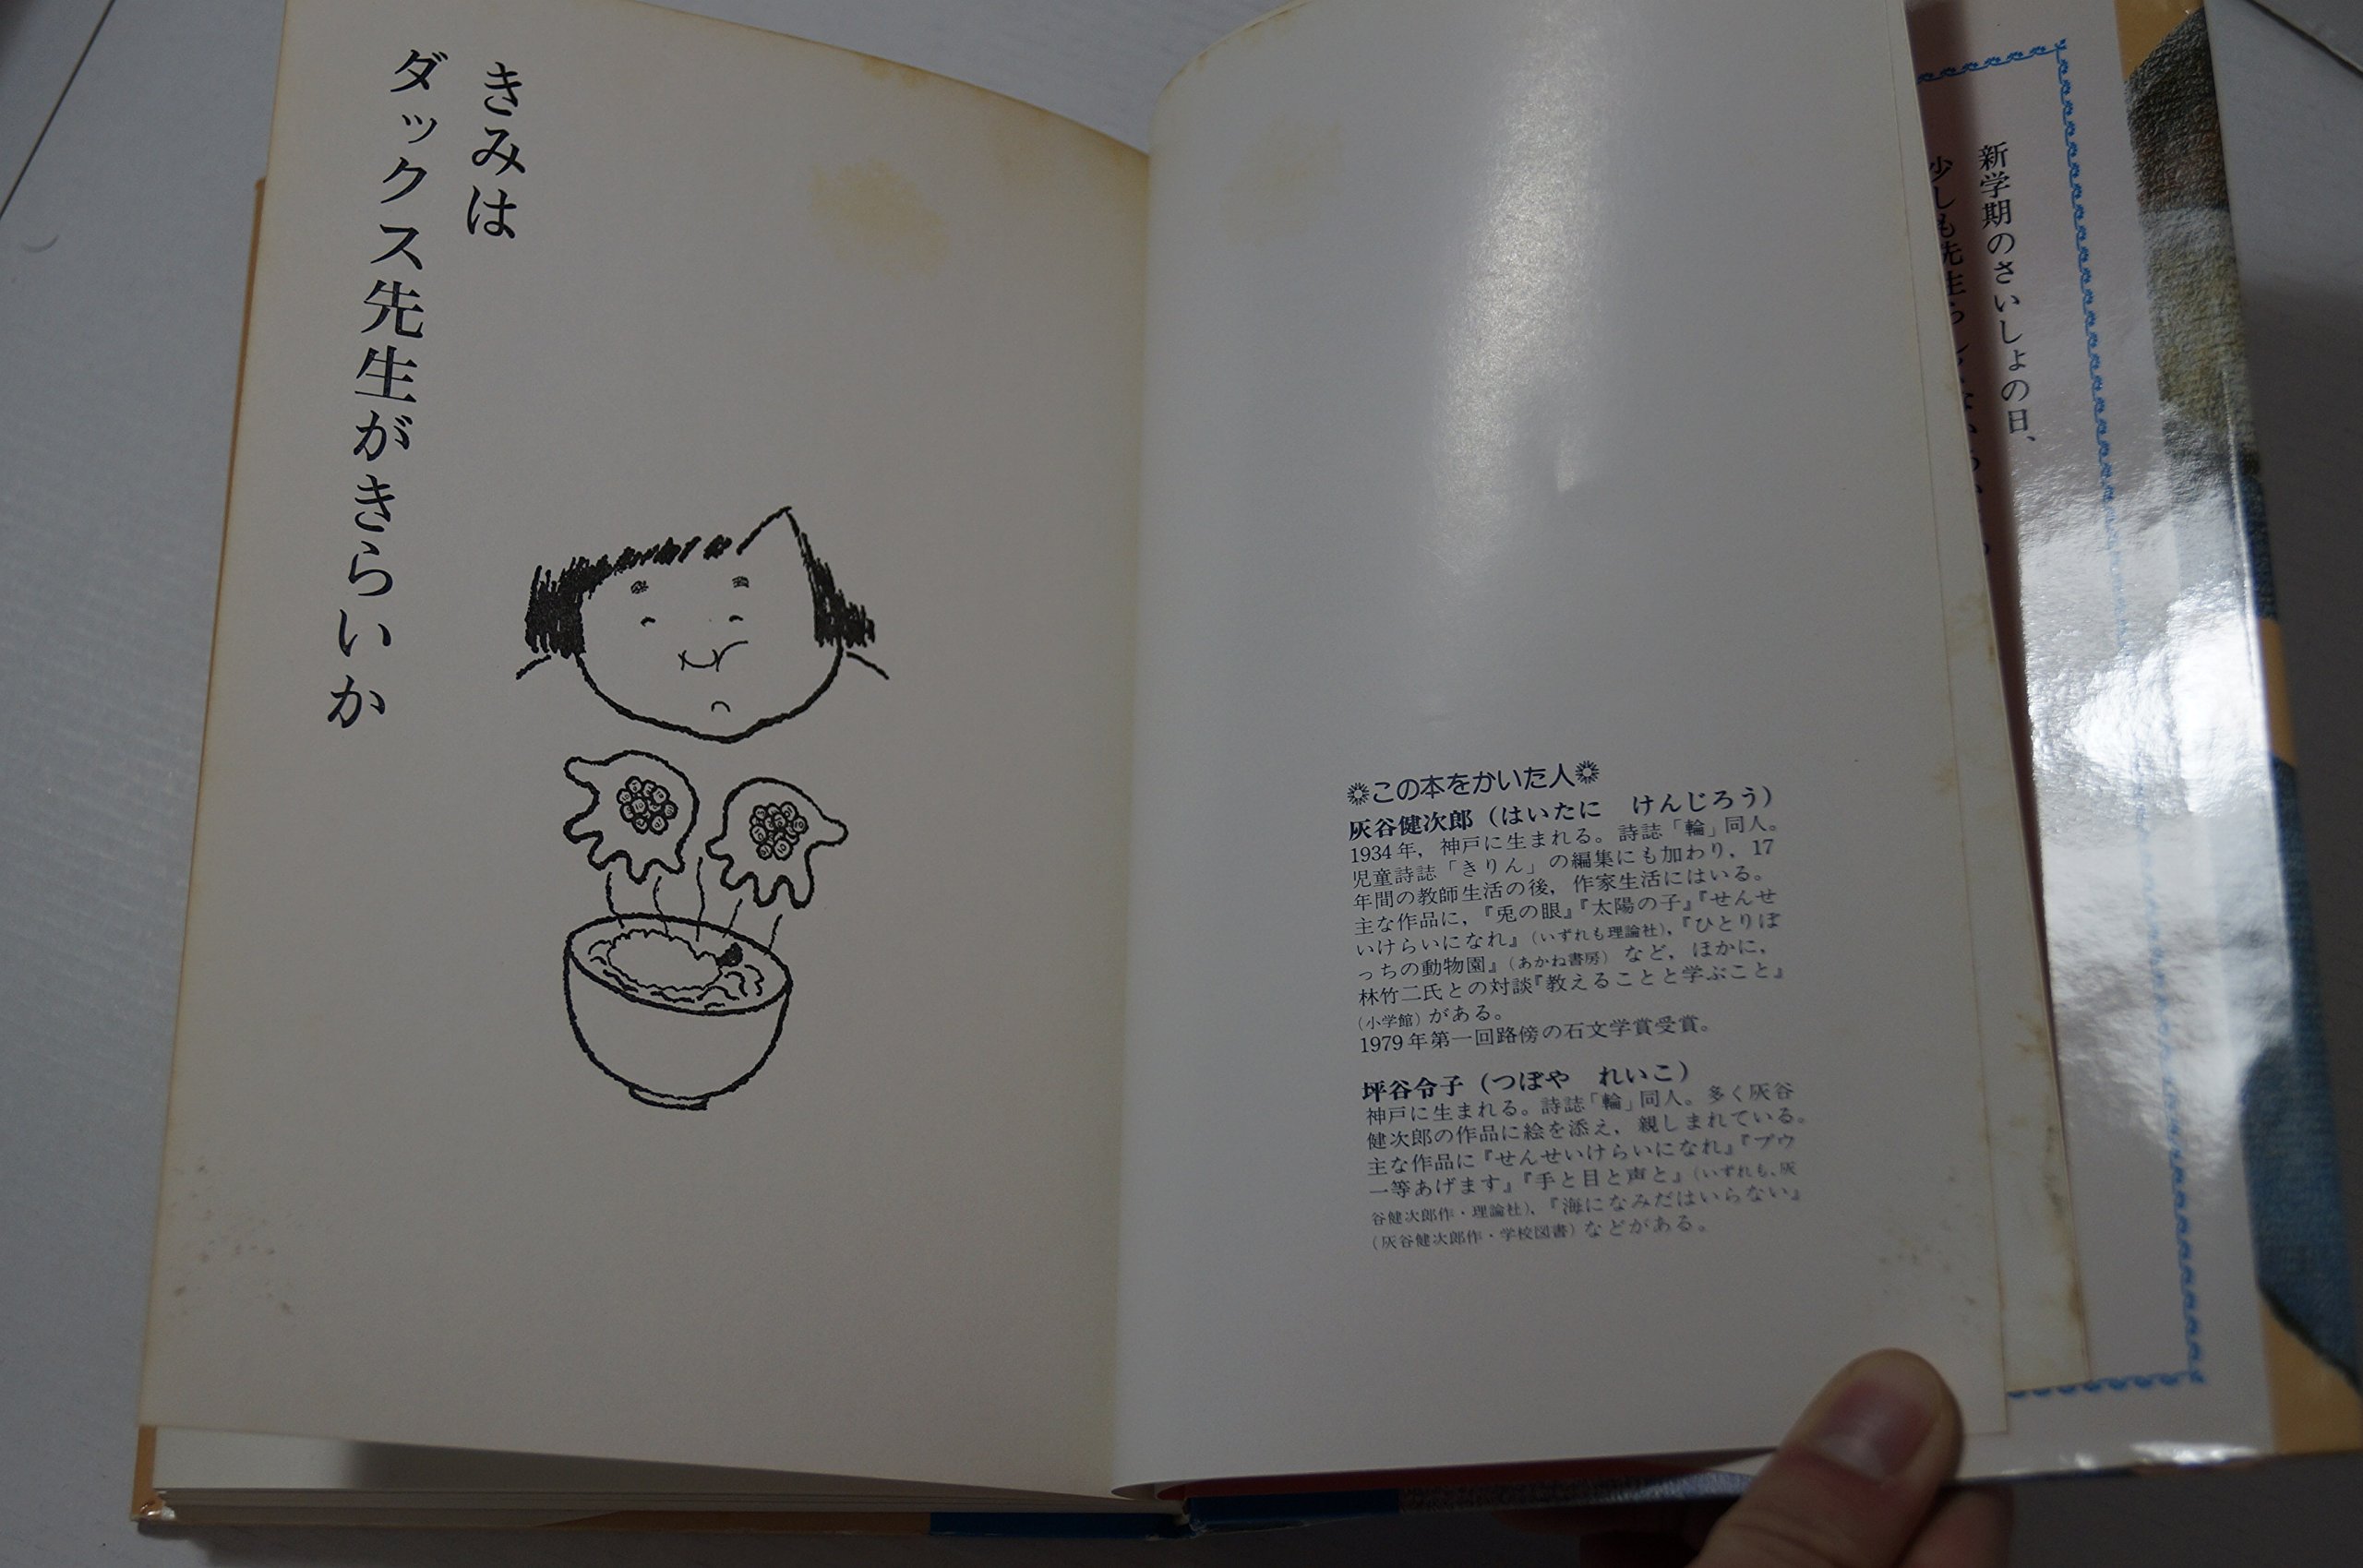 新学期のさいしょの日、
少しも先生らし
✺この本をかいた人✺
灰谷健次郎（はいたに　けんじろう）
1934年，神戸に生まれる。詩誌「輪」同人。
児童詩誌「きりん」の編集にも加わり，17
年間の教師生活の後，作家生活にはいる。
主な作品に，『兎の眼』『太陽の子』『せんせ
いけらいになれ』（いずれも理論社），『ひとりぼ
っちの動物園』（あかね書房）など，ほかに，
林竹二氏との対談『教えることと学ぶこと』
（小学館）がある。
1979年第一回路傍の石文学賞受賞。
坪谷令子（つぼや　れいこ）
神戸に生まれる。詩誌「輪」同人。多く灰谷
健次郎の作品に絵を添え，親しまれている。
主な作品に『せんせいけらいになれ』『プウ
一等あげます』『手と目と声と』（いずれも、灰
谷健次郎作・理論社），『海になみだはいらない』
（灰谷健次郎作・学校図書）などがある。
きみは
ダックス先生がきらいか